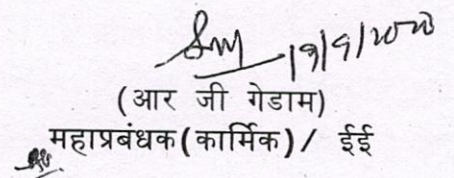 19/9/2023
(आर जी गेडाम)
महाप्रबंधक(कार्मिक)/ ईई